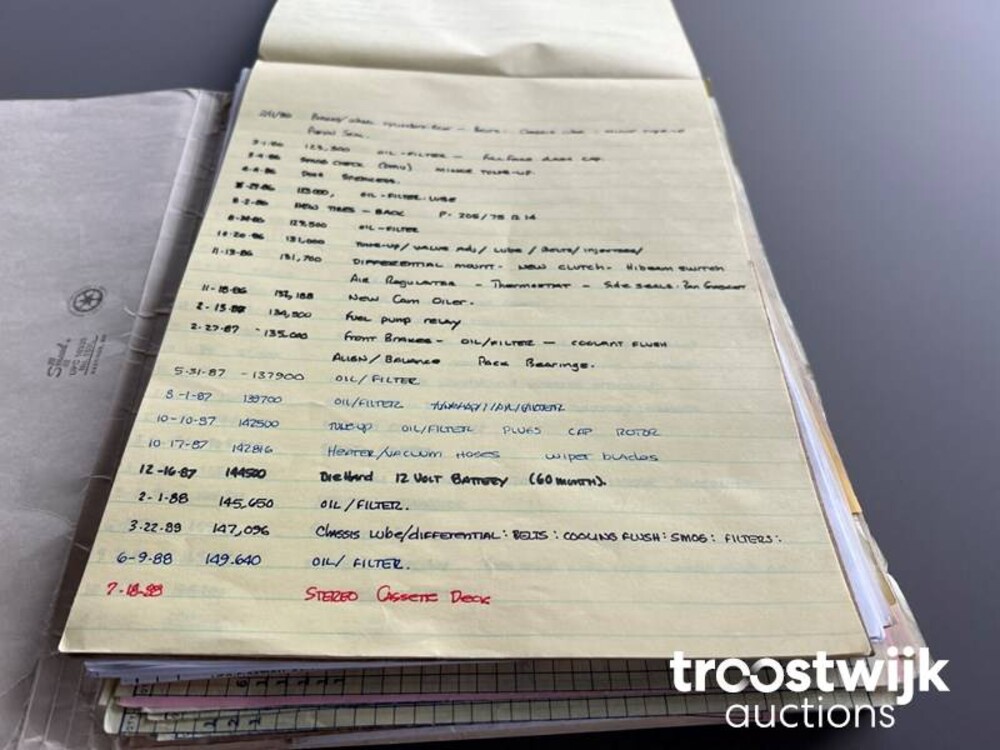 3-1-86 123,500 OIL-FILTER - CAP.
SMOG CHECK (DMV) MINOR TUNE-UP.
DOOR SPEAKERS.
OIL-FILTER-LUBE
NEW TIRES - BACK P-205/75 R 14
129,500 OIL-FILTER
10-20-86 131,000 TUNE-UP/ VALVE ADJ/ LUBE / BELTS/ INJECTORS/
11-13-86 131,700 DIFFERENTIAL MOUNT- NEW CLUTCH- HIBEAM SWITCH
AIR REGULATOR - THERMOSTAT - SIDE SEALS. PAN GASKET
11-18-86 132,188 NEW CAM OILER.
2-15-87 134,500 FUEL PUMP RELAY
2-27-87 -135,000 FRONT BRAKES- OIL/FILTER - COOLANT FLUSH
ALIGN/BALANCE PACK BEARINGS.
5-31-87 -137900 OIL/FILTER
8-1-87 139700 OIL/FILTER
10-10-87 142500 TUNEUP OIL/FILTER PLUGS CAP ROTOR
10-17-87 142816 HEATER/VACUUM HOSES WIPER BLADES
12-16-87 144500 DIEHARD 12 VOLT BATTERY (60 MONTH).
2-1-88 145,650 OIL/FILTER.
3-22-88 147,096 CHASSIS LUBE/DIFFERENTIAL: BELTS: COOLING FLUSH: SMOG: FILTERS:
6-9-88 149.640 OIL/ FILTER.
7-18-88 STEREO CASSETE DECK
troostwijk
auctions